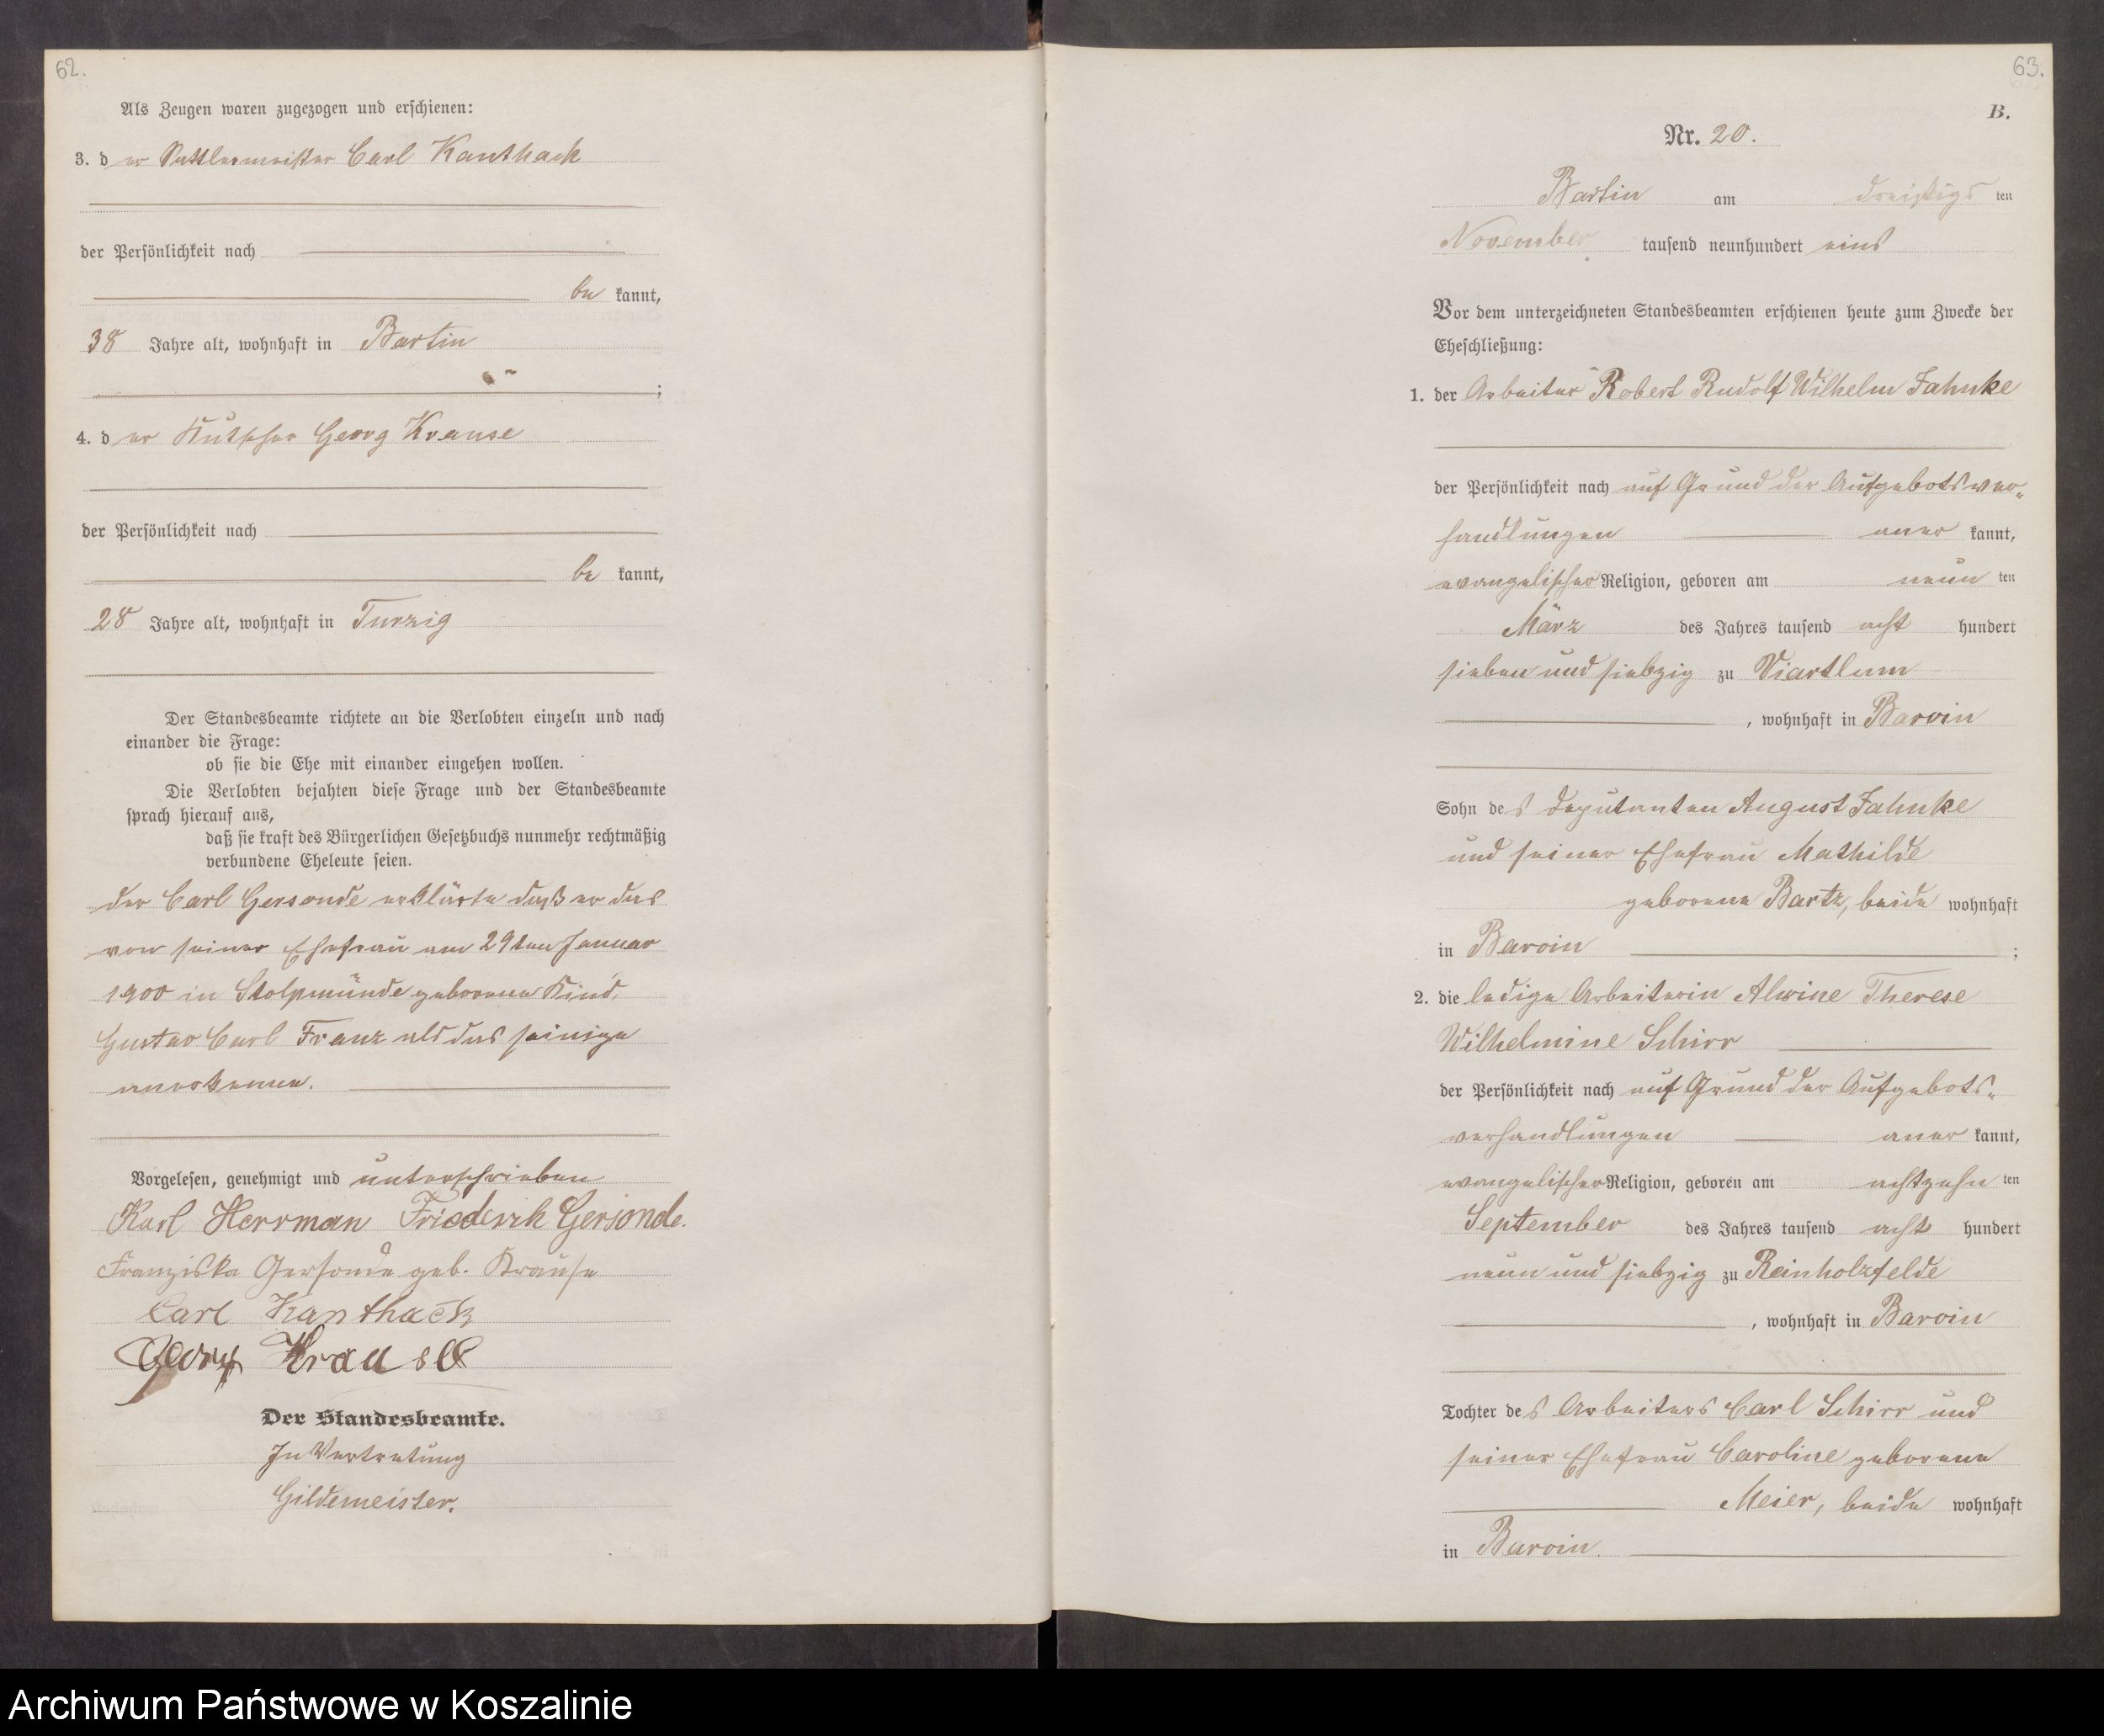 62.
Als Zeugen waren zugezogen und erschienen:
3. der Sattlermeister Carl Kanthack
der Persönlichkeit nach
be kannt,
38 Jahre alt, wohnhaft in Bartin
;
4. der Kutscher Georg Krause
der Persönlichkeit nach
be kannt,
28 Jahre alt, wohnhaft in Turzig
Der Standesbeamte richtete an die Verlobten einzeln und nach
einander die Frage:
ob sie die Ehe mit einander eingehen wollen.
Die Verlobten bejahten diese Frage und der Standesbeamte
sprach hierauf aus,
daß sie kraft des Bürgerlichen Gesetzbuchs nunmehr rechtmäßig
verbundene Eheleute seien.
Der Carl Gersonde erklärte daß er das
von seiner Ehefrau am 29ten Januar
1900 in Stolpmünde geborene Kind,
Gustav Carl Franz als das seinige
anerkenne.
Vorgelesen, genehmigt und unterschrieben
Karl Herrman Friederich Gersonde.
Franziska Gersonde geb. Krause
Carl Kanthack
Georg Krause
Der Standesbeamte.
In Vertretung
Gildemeister.
63.
B.
Nr. 20.
Bartin am dreißigs ten
November tausend neunhundert eins
Vor dem unterzeichneten Standesbeamten erschienen heute zum Zwecke der
Eheschließung:
1. der Arbeiter Robert Rudolf Wilhelm Jahnke
der Persönlichkeit nach auf Grund der Aufgebotsver-
handlungen aner kannt,
evangelischer Religion, geboren am neun ten
März des Jahres tausend acht hundert
sieben und siebzig zu Viartlum
, wohnhaft in Barvin
Sohn des Deputanten August Jahnke
und seiner Ehefrau Mathilde
geborene Bartz, beide wohnhaft
in Barvin ;
2. die ledige Arbeiterin Alwine Therese
Wilhelmine Schirr
der Persönlichkeit nach auf Grund der Aufgebots-
verhandlungen aner kannt,
evangelischer Religion, geboren am achtzehn ten
September des Jahres tausend acht hundert
neun und siebzig zu Reinholzfelde
, wohnhaft in Barvin
Tochter des Arbeiters Carl Schirr und
seiner Ehefrau Caroline geborene
Meier, beide wohnhaft
in Barvin.
Archiwum Państwowe w Koszalinie